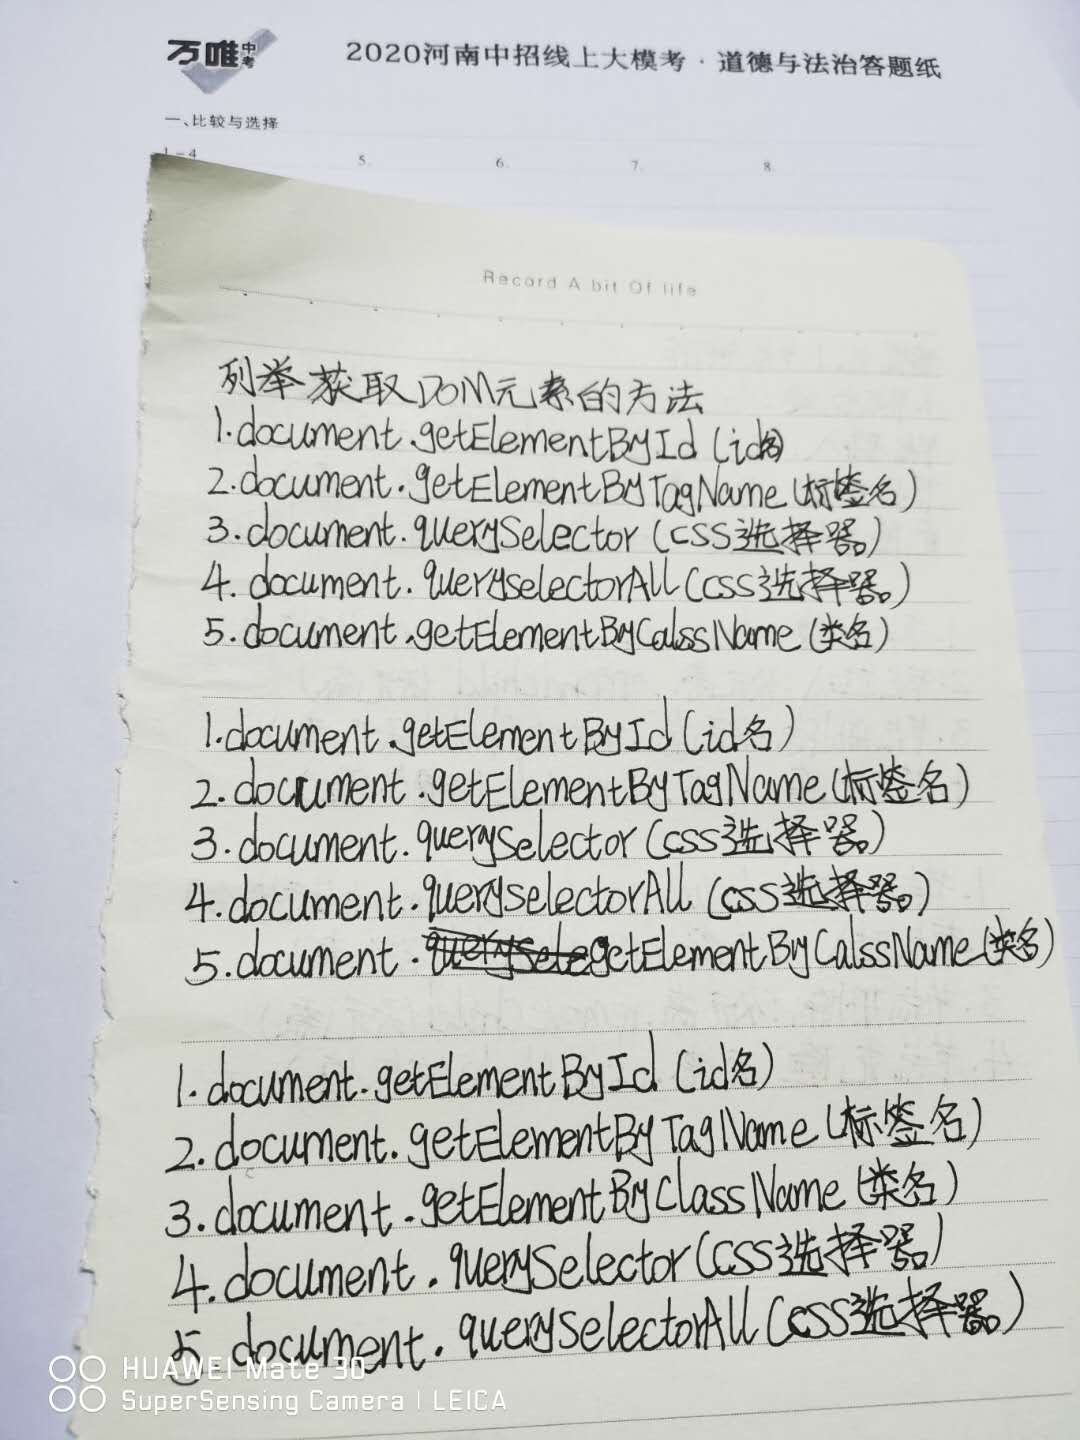 万唯中考
2020河南中招线上大模考·道德与法治答题纸
一、比较与选择
1-4 5. 6. 7. 8.
Record A bit Of life
列举获取DOM元素的方法
1.document.getElementById(id名)
2.document.getElementByTagName(标签名)
3.document.querySelector(CSS选择器)
4.document.queryselectorAll(css选择器)
5.document.getElementByCalssName(类名)
1.document.getElementById(id名)
2.document.getElementByTagName(标签名)
3.document.querySelector(css选择器)
4.document.queryselectorAll(css选择器)
5.document.querySelegetElementByCalssName(类名)
1.document.getElementById(id名)
2.document.getElementByTagName(标签名)
3.document.getElementByClassName(类名)
4.document.querySelector(CSS选择器)
5.document.querySelectorAll(css选择器)
HUAWEI Mate 30
SuperSensing Camera | LEICA